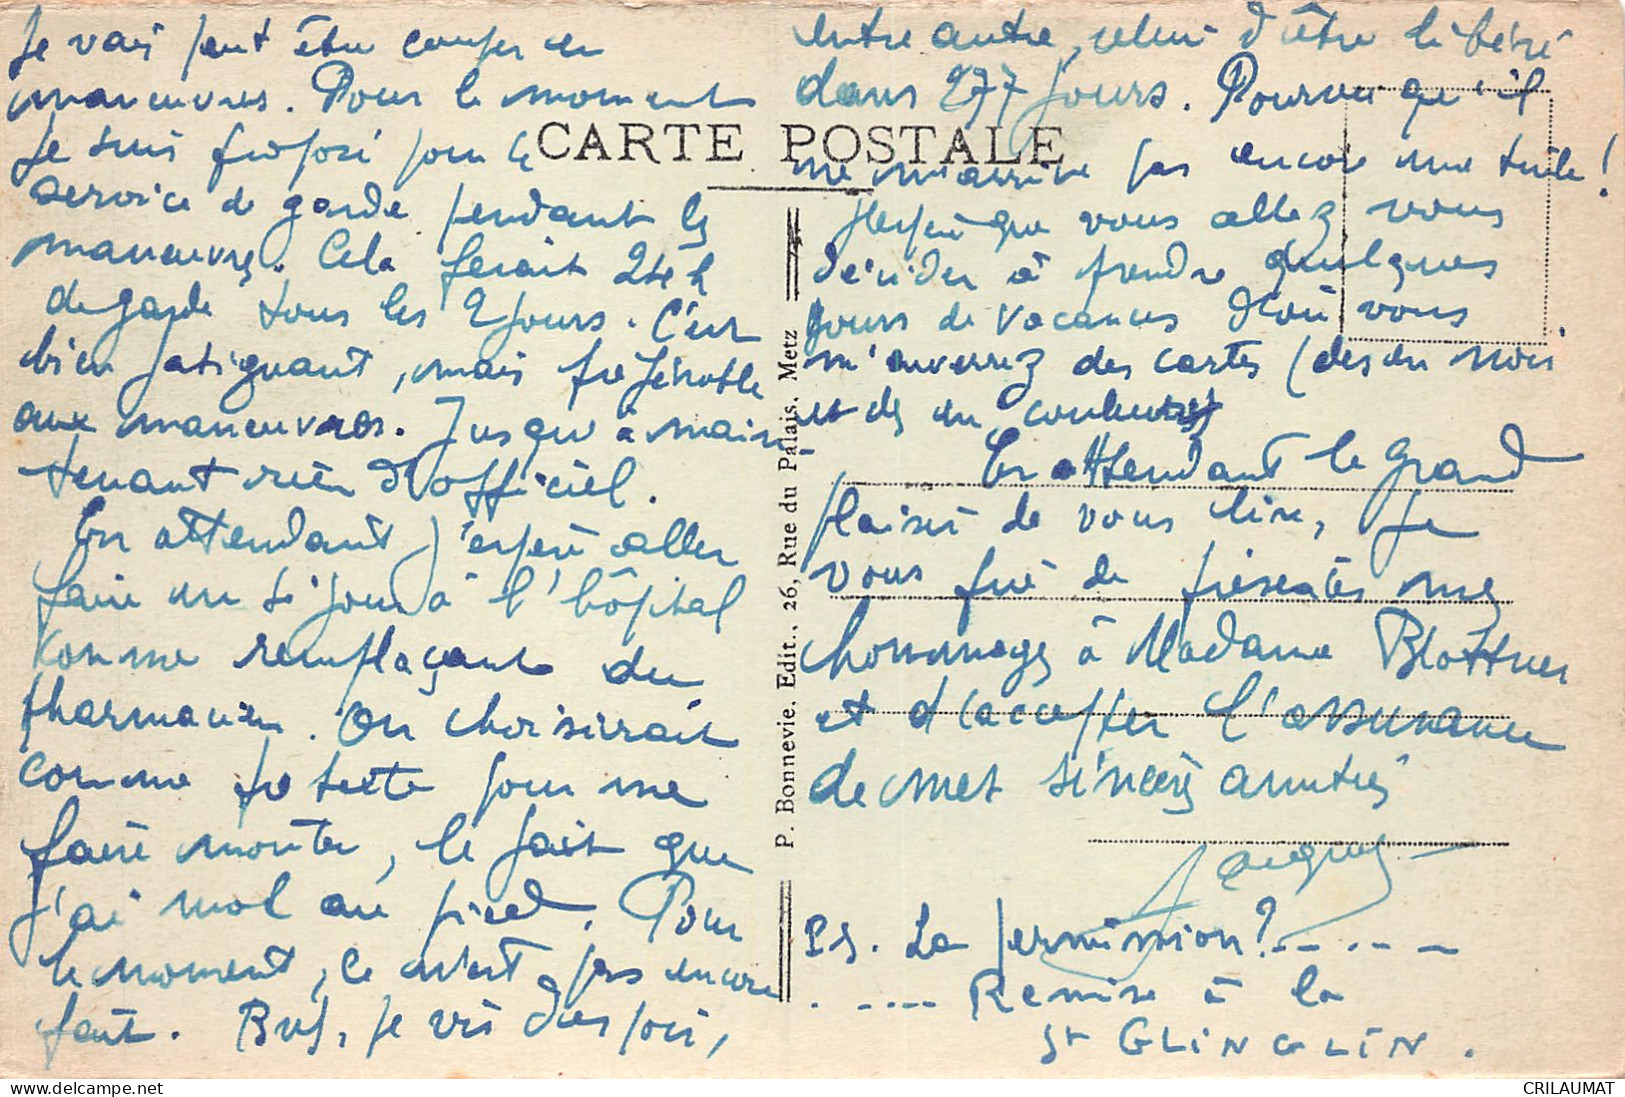 Je vais peut être couper en
manœuvres. Pour le moment
je suis proposé pour le
service de garde pendant les
manœuvres. Cela ferait 24 h
de garde tous les 2 jours. C'est
bien fatiguant, mais préférable
aux manœuvres. Jusqu'à main
tenant rien d'officiel.
En attendant j'espère aller
faire un séjour à l'hôpital
comme remplaçant du
pharmacien. On choisirait
comme prétexte pour me
faire monter, le fait que
j'ai mal au pied. Pour
le moment, ce n'est pas encore
fait. Bref, je vis d'espoir,
CARTE POSTALE
P. Bonnevie, Edit., 26, Rue du Palais, Metz
entre autre, celui d'être libéré
dans 277 jours. Pourvu qu'il
ne m'arrive pas encore une tuile!
J'espère que vous allez vous
décider à prendre quelques
jours de vacances d'où vous
m'enverrez des cartes (des en noir
et des en couleurs)
En attendant le grand
plaisir de vous lire, je
vous prie de présenter mes
hommages à Madame Blottner
et d'accepter l'assurance
de mes sincères amitiés
Jacques
PS. La permission?..----
.---- Remise à la
St GLINGLIN.
CRILAUMAT